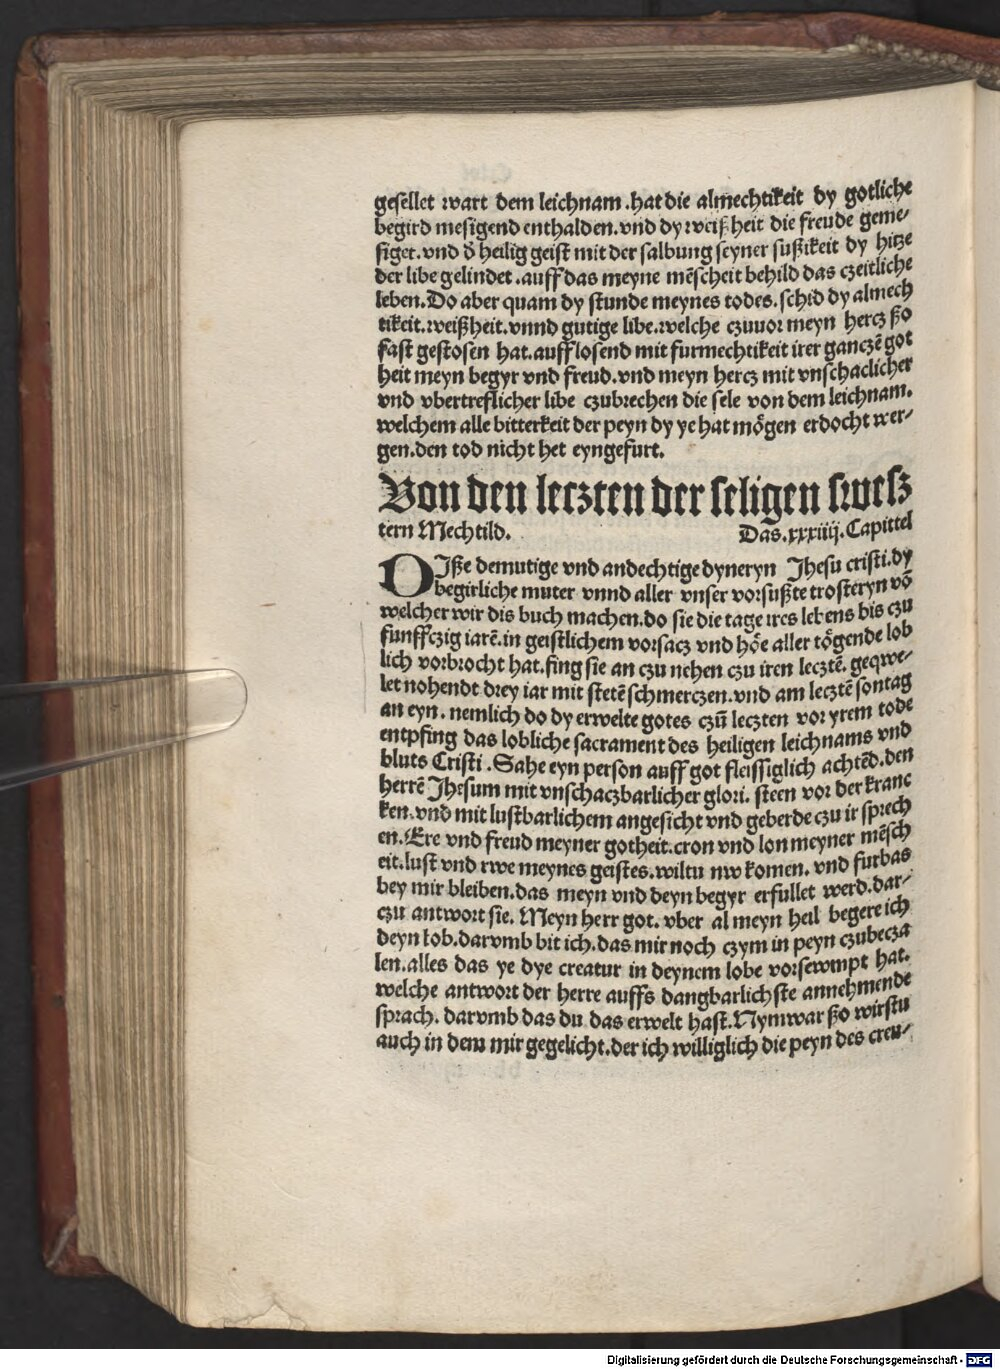 gesellet wart dem leichnam .hat die almechtikeit dy gotliche
begird mesigend enthalden.vnd dy weißheit die freude geme⸗
siget.vnd d̄ heilig geist mit der salbung seyner sußikeit dy hitze
der libe gelindet .auff das meyne mēscheit behild das czeitliche
leben.Do aber quam dy stunde meynes todes.schid dy almech
tikeit.weißheit.vnnd gutige libe.welche czuuor meyn hercz ßo
fast gestosen hat.aufflosend mit furmechtikeit irer ganczē got
heit meyn begyr vnd freud.vnd meyn hercz mit vnschaclicher
vnd vbertreflicher libe czubrechen die sele von dem leichnam.
welchem alle bitterkeit der peyn dy ye hat mögen erdocht wer⸗
gen.den tod nicht het eyngefurt.
Von den leczten der seligen swesz
tern Mechtild. Das.xxxiiij.Capittel
DIße demutige vnd andechtige dyneryn Jhesu cristi.dy
begirliche muter vnnd aller vnser vorsußte trosteryn vō
welcher wir dis buch machen.do sie die tage ires lebens bis czu
funffczig iarē.in geistlichem vorsacz vnd höe aller tögende lob
lich vorbrocht hat.fing sie an czu nehen czu iren lecztē. geqwe⸗
let nohendt drey iar mit stetē schmerczen.vnd am lecztē sontag
an eyn. nemlich do dy erwelte gotes czū leczten vor yrem tode
entpfing das lobliche sacrament des heiligen leichnams vnd
bluts Cristi .Sahe eyn person auff got fleissiglich achtēd.den
herrē Jhesum mit vnschaczbarlicher glori. steen vor der kranc
ken.vnd mit lustbarlichem angesicht vnd geberde czu ir sprech
en.Ere vnd freud meyner gotheit.cron vnd lon meyner mēsch
eit.lust vnd rwe meynes geistes.wiltu nw komen. vnd furbas
bey mir bleiben.das meyn vnd deyn begyr erfullet werd.dar⸗
czu antwort sie. Meyn herr got. vber al meyn heil begere ich
deyn lob.darvmb bit ich.das mir noch czym in peyn czubecza
len.alles das ye dye creatur in deynem lobe vorsewmpt hat.
welche antwort der herre auffs dangbarlichste annehmende
sprach. darvmb das du das erwelt hast.Nymwar ßo wirstu
auch in dem mir gegelicht.der ich williglich die peyn des creu⸗
Digitalisierung gefördert durch die Deutsche Forschungsgemeinschaft - DFG